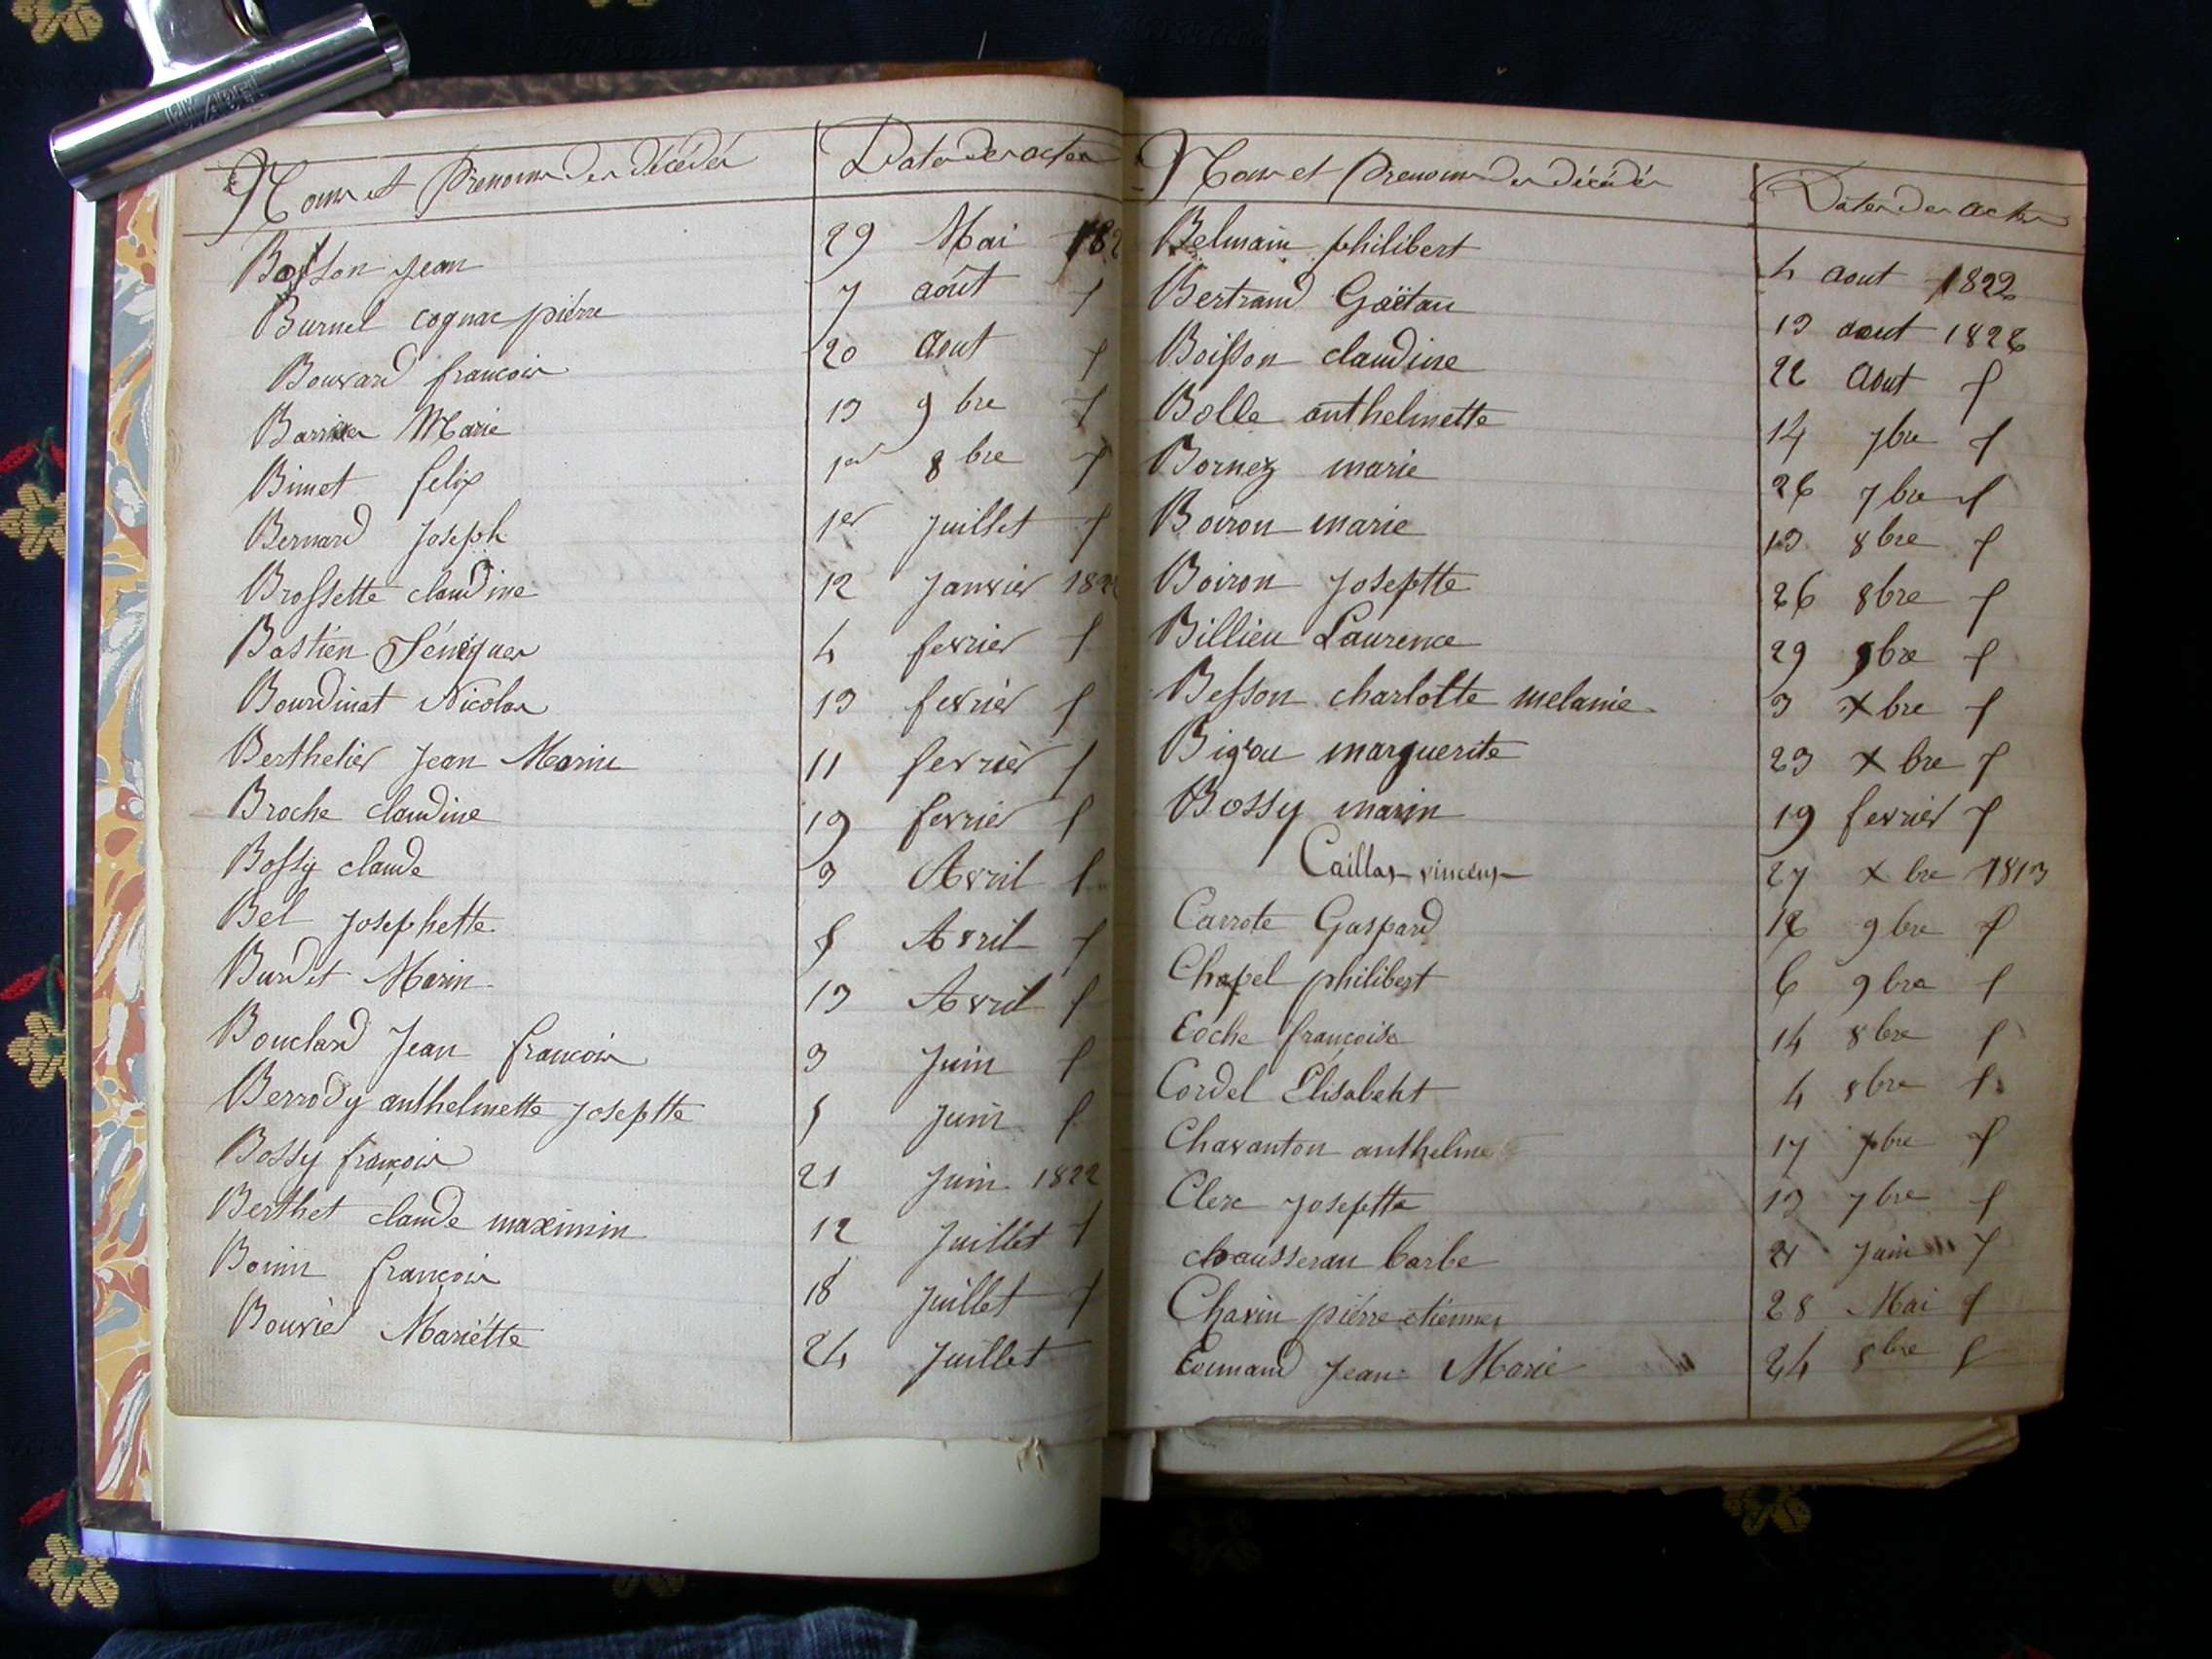 Noms et Prenoms des décédés Date des actes
Bosson Jean 29 Mai 182
Burnel cognac piérre 7 août f
Bouvard francois 20 Aout f
Barrier Marie 13 9bre f
Bimet felix 1er 8bre f
Bernard Joseph 1er Juillet f
Brossette claudine 12 Janvier 182
Bastien 4 fevrier f
Bourdinat Nicolas 13 fevrièr f
Berthelier Jean Marie 11 fevrièr f
Broche claudine 19 fevrier f
Bossy claude 3 Avril f
Bel Josephette 5 Avril f
Burdet Marin 13 Avril f
Bouclard Jean francois 3 Juin f
Berrody anthelmette Josephtte 5 Juin f
Bossy françois 21 Juin 1822
Berthet claude maximin 12 Juillet f
Bonin françois 18 Juillet f
Bouvièr Mariétte 24 Juillet
Noms et Prenoms des décédés Dates des actes
Belmain philibert 4 aout 1822
Bertrand Gaëtan 13 aout 1822
Boisson claudine 22 Aout f
Bolle anthelmette 14 7bre f
Bornez marie 26 7bre f
Boiron marie 13 8bre f
Boiron Josephtte 26 8bre f
Billieu Laurence 29 9bre f
Besson charlotte melanie 3 Xbre f
marguerite 23 Xbre f
Bossy marin 19 fevrier f
Caillas vincens 27 Xbre 1813
Carrote Gaspard 12 9bre f
Chapel philibert 6 9bre f
Coche françoise 14 8bre f
Cordel Elisabeht 4 8bre f
Chavanton anthelme 17 7bre f
Clerc Josephtte 13 7bre f
chausseran barbe 21 Juin f
Chavin piérre etienne 28 Mai f
Jean Marie 24 8bre f